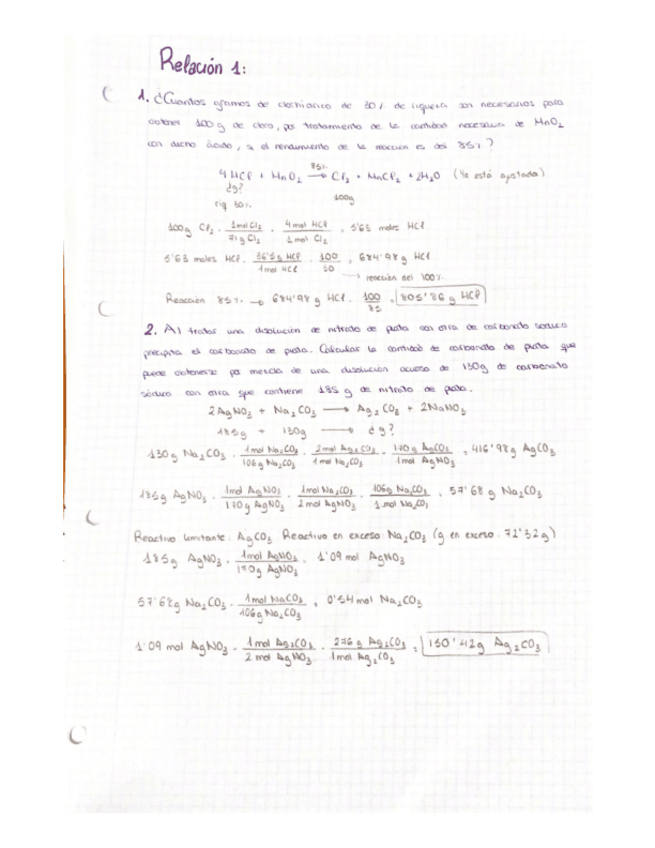 Relación 1:
1. ¿Cuantos gramos de clorhídrico de 30% de riqueza son necesarios para
obtener 100 g de cloro, por tratamiento de la cantidad necesaria de MnO₂
con dicho ácido, si el rendimiento de la reacción es del 85%?
85%
4 HCl + MnO₂ → Cl₂ + MnCl₂ + 2H₂O (Ya está ajustada)
¿g? 100g
riq 30%
100g Cl₂ · 1mol Cl₂ / 71g Cl₂ · 4 mol HCl / 1 mol Cl₂ = 5'63 moles HCl
5'63 moles HCl · 36'5g HCl / 1mol HCl · 100 / 30 = 684'98 g HCl
→ reacción del 100%
Reacción 85% → 684'98 g HCl · 100 / 85 = 805'86 g HCl
2. Al tratar una disolución de nitrato de plata con otra de carbonato sódico
precipita el carbonato de plata. Calcular la cantidad de carbonato de plata que
puede obtenerse por mezcla de una disolución acuosa de 130g de carbonato
sódico con otra que contiene 185 g de nitrato de plata.
2AgNO₃ + Na₂CO₃ → Ag₂CO₃ + 2NaNO₃
185g + 130g → ¿g?
130g Na₂CO₃ · 1mol Na₂CO₃ / 106g Na₂CO₃ · 2mol Ag₂CO₃ / 1mol Na₂CO₃ · 170g AgCO₃ / 1mol AgNO₃ = 416'98g AgCO₃
185g AgNO₃ · 1mol AgNO₃ / 170g AgNO₃ · 1mol Na₂CO₃ / 2mol AgNO₃ · 106g Na₂CO₃ / 1mol Na₂CO₃ = 57'68g Na₂CO₃
Reactivo limitante: AgCO₃ Reactivo en exceso: Na₂CO₃ (g en exceso = 72'32g)
185g AgNO₃ · 1mol AgNO₃ / 170g AgNO₃ = 1'09 mol AgNO₃
57'68g Na₂CO₃ · 1mol NaCO₃ / 106g Na₂CO₃ = 0'54 mol Na₂CO₃
1'09 mol AgNO₃ · 1mol Ag₂CO₃ / 2 mol AgNO₃ · 276g Ag₂CO₃ / 1mol Ag₂CO₃ = 150'42g Ag₂CO₃